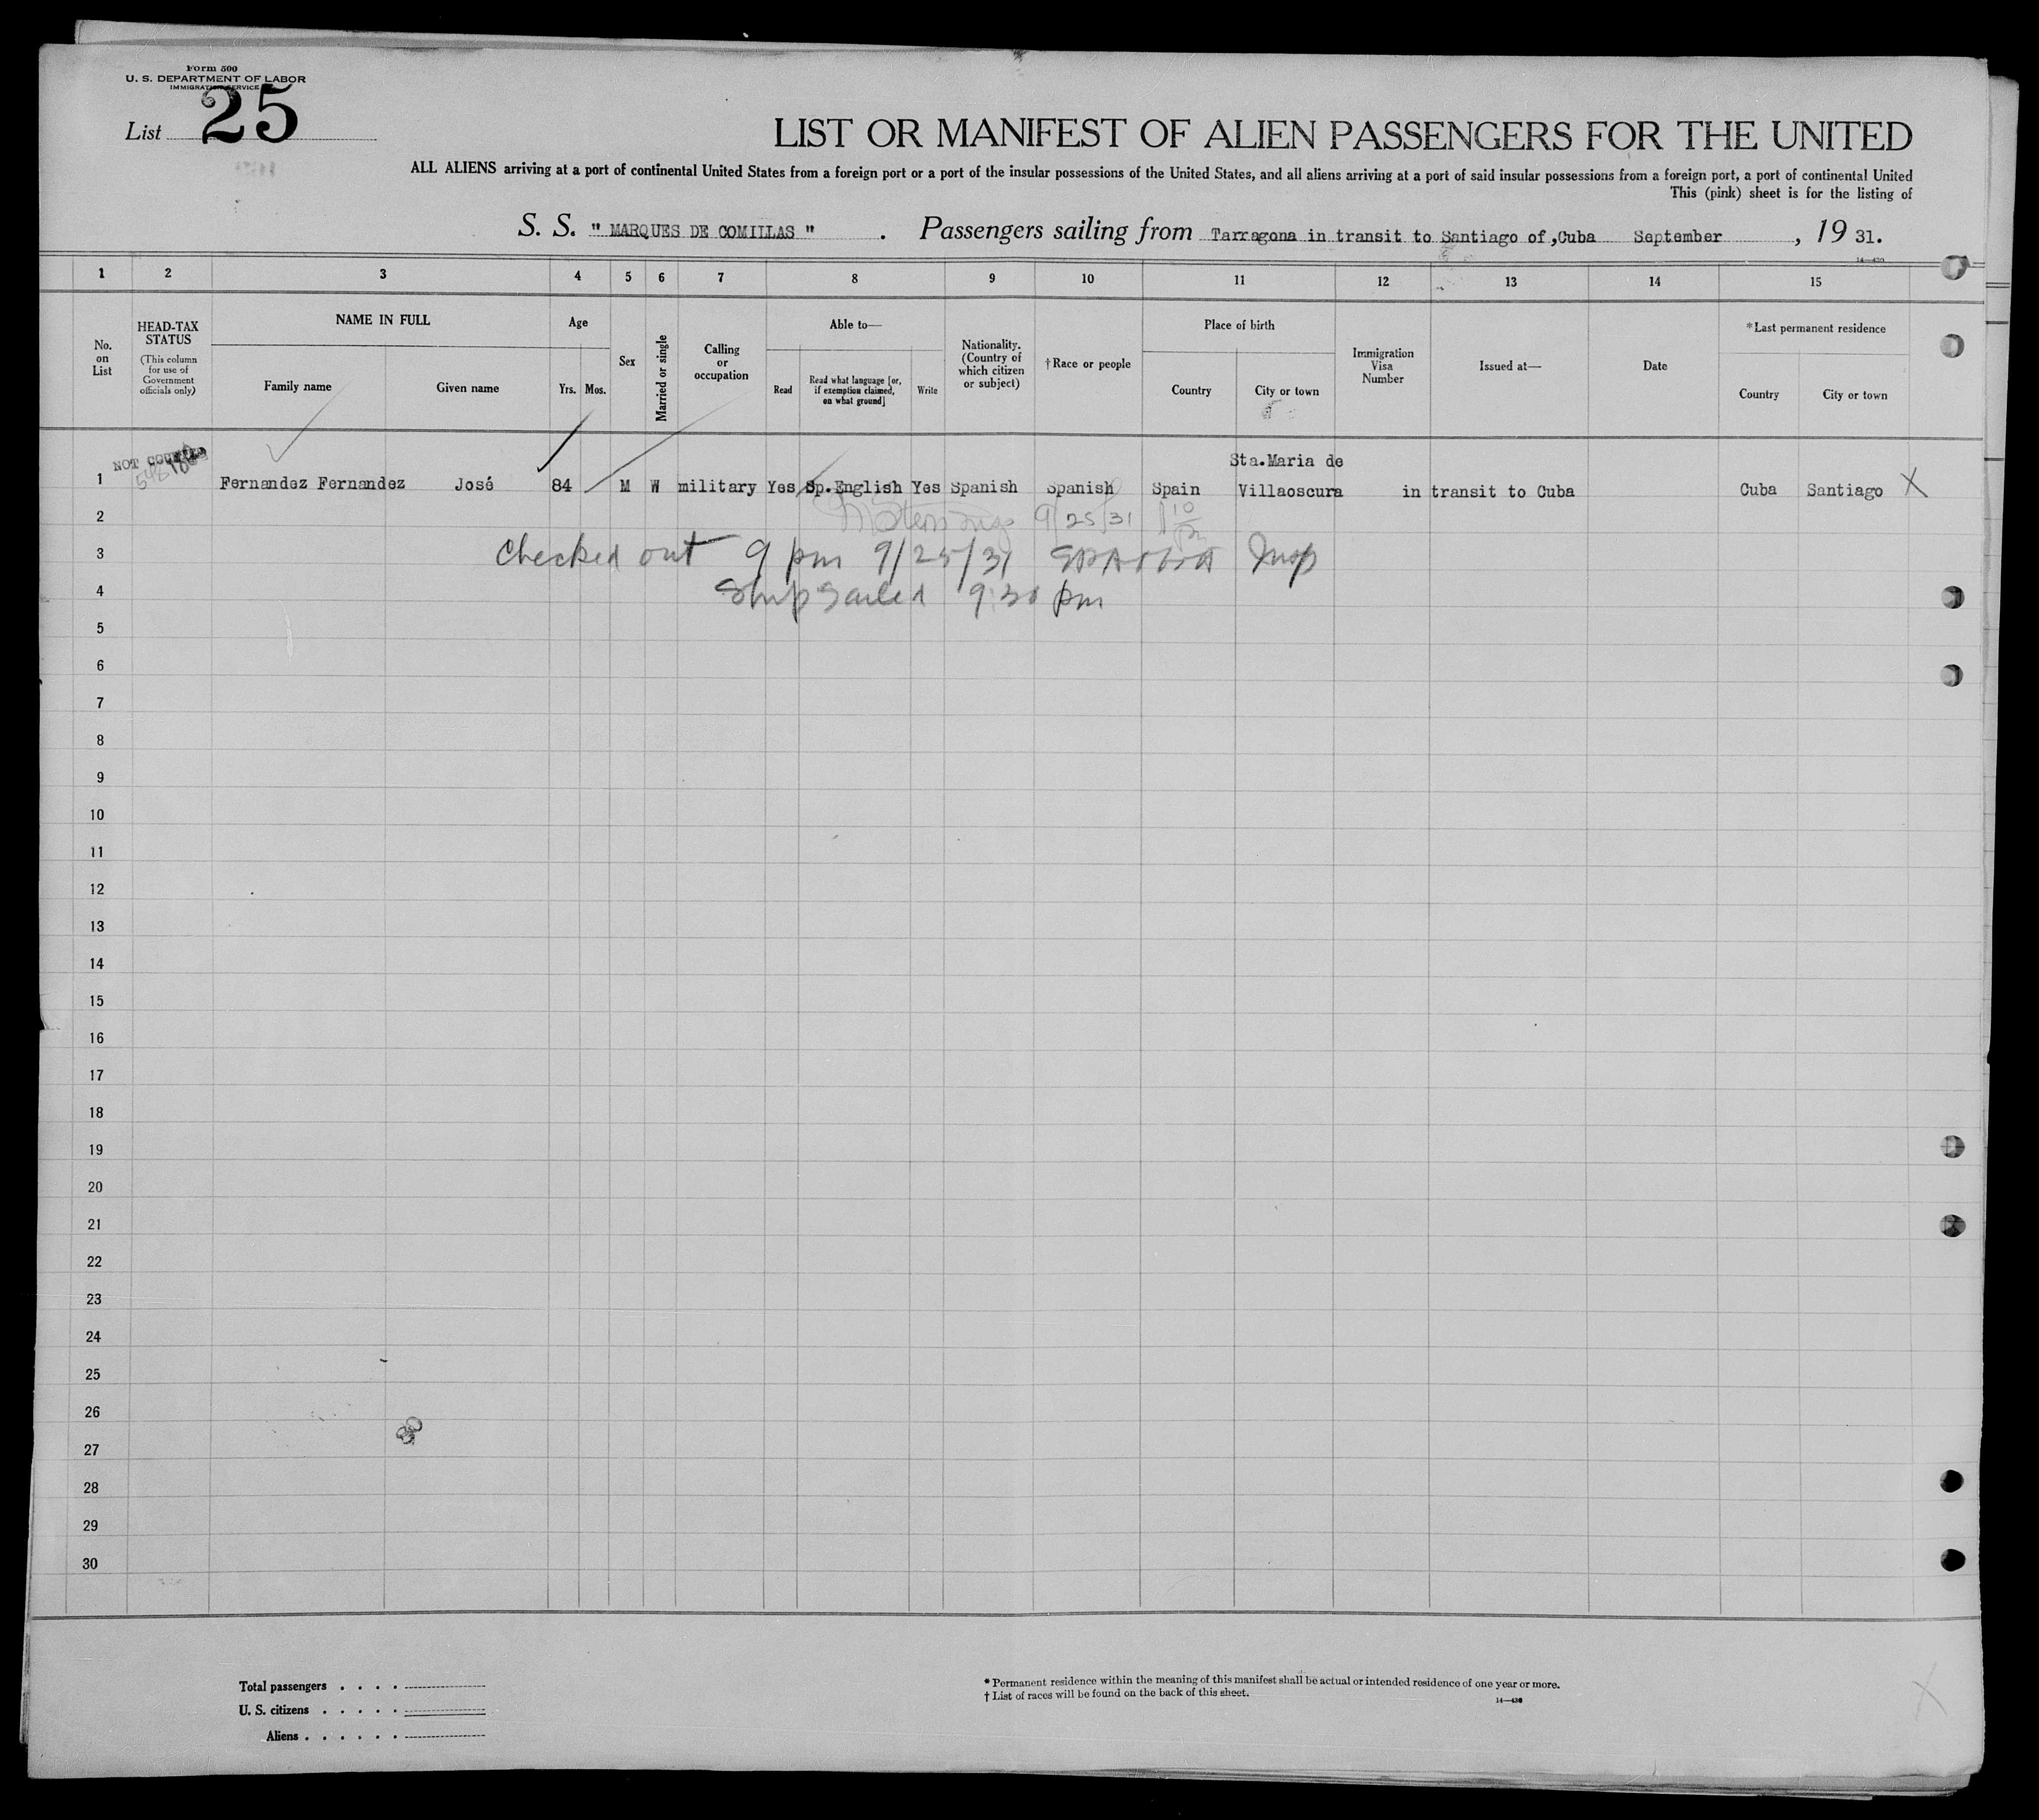 Form 500
U. S. DEPARTMENT OF LABOR
IMMIGRATION SERVICE
List 25
LIST OR MANIFEST OF ALIEN PASSENGERS FOR THE UNITED
ALL ALIENS arriving at a port of continental United States from a foreign port or a port of the insular possessions of the United States, and all aliens arriving at a port of said insular possessions from a foreign port, a port of continental United
This (pink) sheet is for the listing of
S. S. " MARQUES DE COMILLAS " . Passengers sailing from Tarragona in transit to Santiago of ,Cuba September , 19 31.
14—430
1 2 3 4 5 6 7 8 9 10 11 12 13 14 15
No. on List
HEAD-TAX STATUS
(This column for use of Government officials only)
NAME IN FULL
Family name Given name
Age
Yrs. Mos.
Sex
Married or single
Calling or occupation
Able to—
Read
Read what language [or, if exemption claimed, on what ground]
Write
Nationality. (Country of which citizen or subject)
†Race or people
Place of birth
Country City or town
Immigration Visa Number
Issued at—
Date
*Last permanent residence
Country City or town
NOT COUNTED
Sta.Maria de
1 Fernandez Fernandez José 84 M W military Yes Sp.English Yes Spanish Spanish Spain Villaoscura in transit to Cuba Cuba Santiago X
2 9/25/31
3 Checked out 9 pm 9/25/31 Insp
4 Ship Sailed 9:30 pm
5
6
7
8
9
10
11
12
13
14
15
16
17
18
19
20
21
22
23
24
25
26
27
28
29
30
Total passengers . . . .
U. S. citizens . . . . .
Aliens . . . . . .
* Permanent residence within the meaning of this manifest shall be actual or intended residence of one year or more.
† List of races will be found on the back of this sheet.
14—430
X